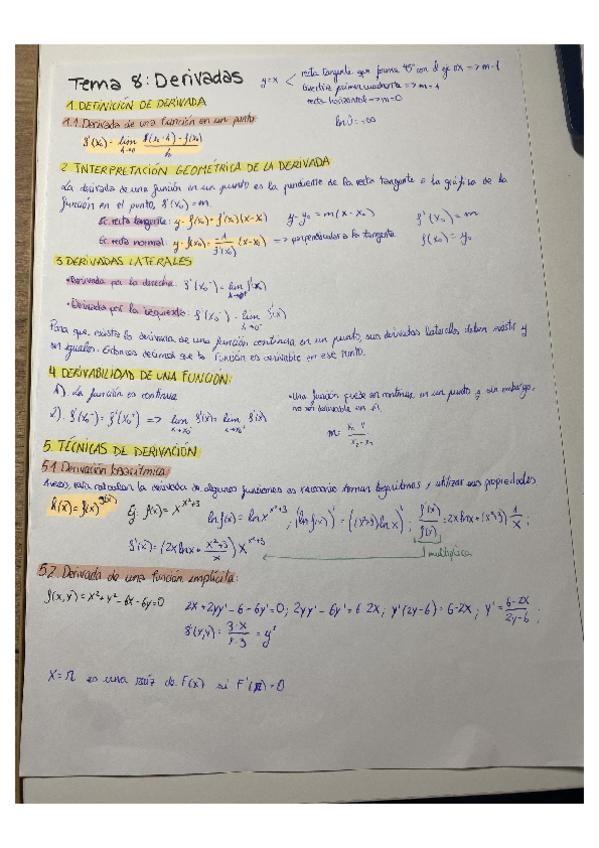 Tema 8: Derivadas
y=x < recta tangente que forma 45° con el eje OX => m=1
bisectriz primer cuadrante => m=1
recta horizontal => m=0
ln 0 = -∞
1. DEFINICIÓN DE DERIVADA
1.1. Derivada de una función en un punto
f'(x₀) = lim h→0 f(x₀+h) - f(x₀) / h
2. INTERPRETACIÓN GEOMÉTRICA DE LA DERIVADA
La derivada de una función en un punto es la pendiente de la recta tangente a la gráfica de la
función en el punto, f'(x₀)=m.
Ec. recta tangente: y-f(x₀)=f'(x₀)(x-x₀) y-y₀=m(x-x₀) f'(x₀)=m
Ec. recta normal: y-f(x₀)= -1/f'(x₀) (x-x₀) => perpendicular a la tangente f(x₀)=y₀
3. DERIVADAS LATERALES
• Derivada por la derecha: f'(x₀⁺)= lim f'(x)
• Derivada por la izquierda: f'(x₀⁻)= lim f'(x)
Para que exista la derivada de una función continua en un punto, sus derivadas laterales deben existir y
ser iguales. Entonces decimos que la función es derivable en ese punto.
4. DERIVABILIDAD DE UNA FUNCIÓN:
1). La función es continua
• Una función puede ser continua en un punto y, sin embargo,
no ser derivable en él.
2). f'(x₀⁻)=f'(x₀⁺) => lim x→x₀⁻ f'(x)= lim x→x₀⁺ f'(x)
5. TÉCNICAS DE DERIVACIÓN
5.1. Derivación logarítmica
A veces, para calcular la derivada de algunas funciones es necesario tomar logaritmos y utilizar sus propiedades
h(x)=f(x)^g(x) Ej: f(x)=x^(x²+3) ln f(x)= ln x^(x²+3) ; (ln f(x))'=((x²+3) ln x)' ; f'(x)/f(x) = 2x ln x+(x²+3) 1/x ;
f'(x)=(2x ln x + x²+3/x) x^(x²+3)
multiplica
5.2. Derivada de una función implícita:
f(x,y)=x²+y²-6x-6y=0 2x+2yy'-6-6y'=0; 2yy'-6y'=6-2x; y'(2y-6)=6-2x; y'= 6-2x/2y-6 ;
f'(x,y)= 3-x/y-3 = y'